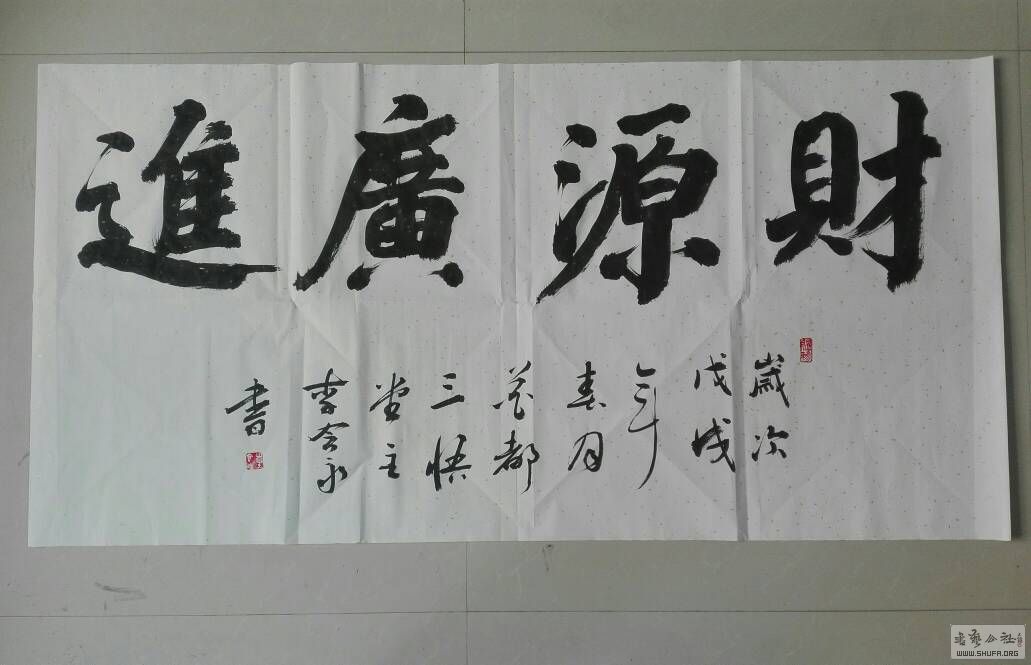 財源廣進
歲次
戊戌
年
春月
花都
三悟
堂主
李會永
書
書藝公社
WWW.SHUFA.ORG